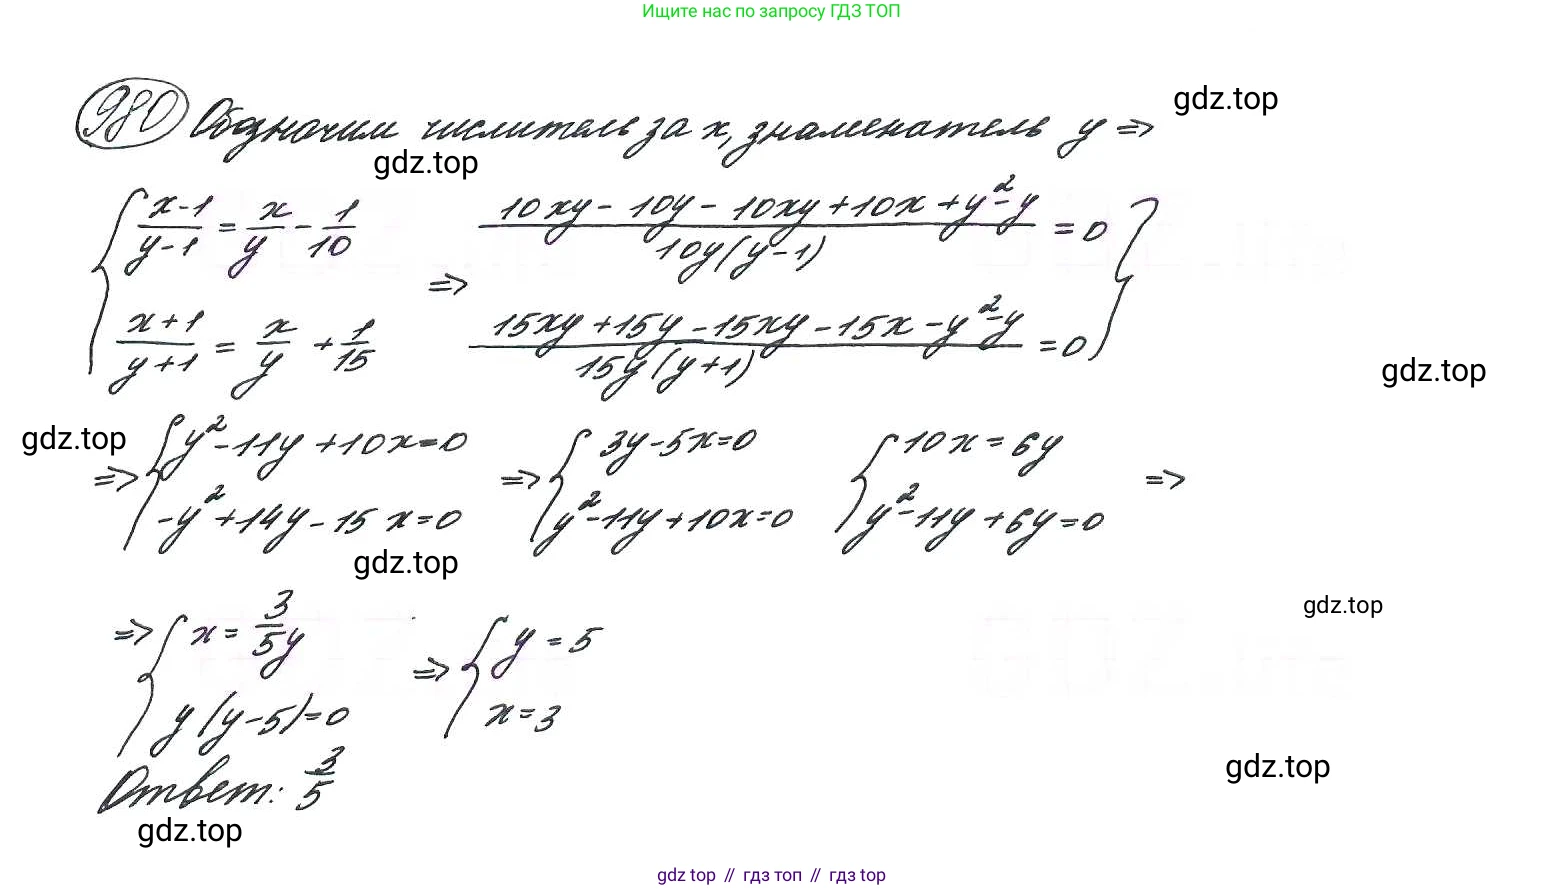 Ищите нас по запросу ГДЗ ТОП
980 Обозначим числитель за x, знаменатель y ⇒
gdz.top
gdz.top
{ (x-1)/(y-1) = x/y - 1/10 ⇒ (10xy - 10y - 10xy + 10x + y² - y)/(10y(y-1)) = 0 }
{ (x+1)/(y+1) = x/y + 1/15 (15xy + 15y - 15xy - 15x - y² - y)/(15y(y+1)) = 0 }
gdz.top
gdz.top
⇒ { y² - 11y + 10x = 0 ⇒ { 3y - 5x = 0 { 10x = 6y ⇒
{ -y² + 14y - 15x = 0 { y² - 11y + 10x = 0 { y² - 11y + 6y = 0
gdz.top
gdz.top
⇒ { x = 3/5 y ⇒ { y = 5
{ y(y-5) = 0 { x = 3
gdz.top
Ответ: 3/5
gdz.top
gdz top // гдз топ // гдз top